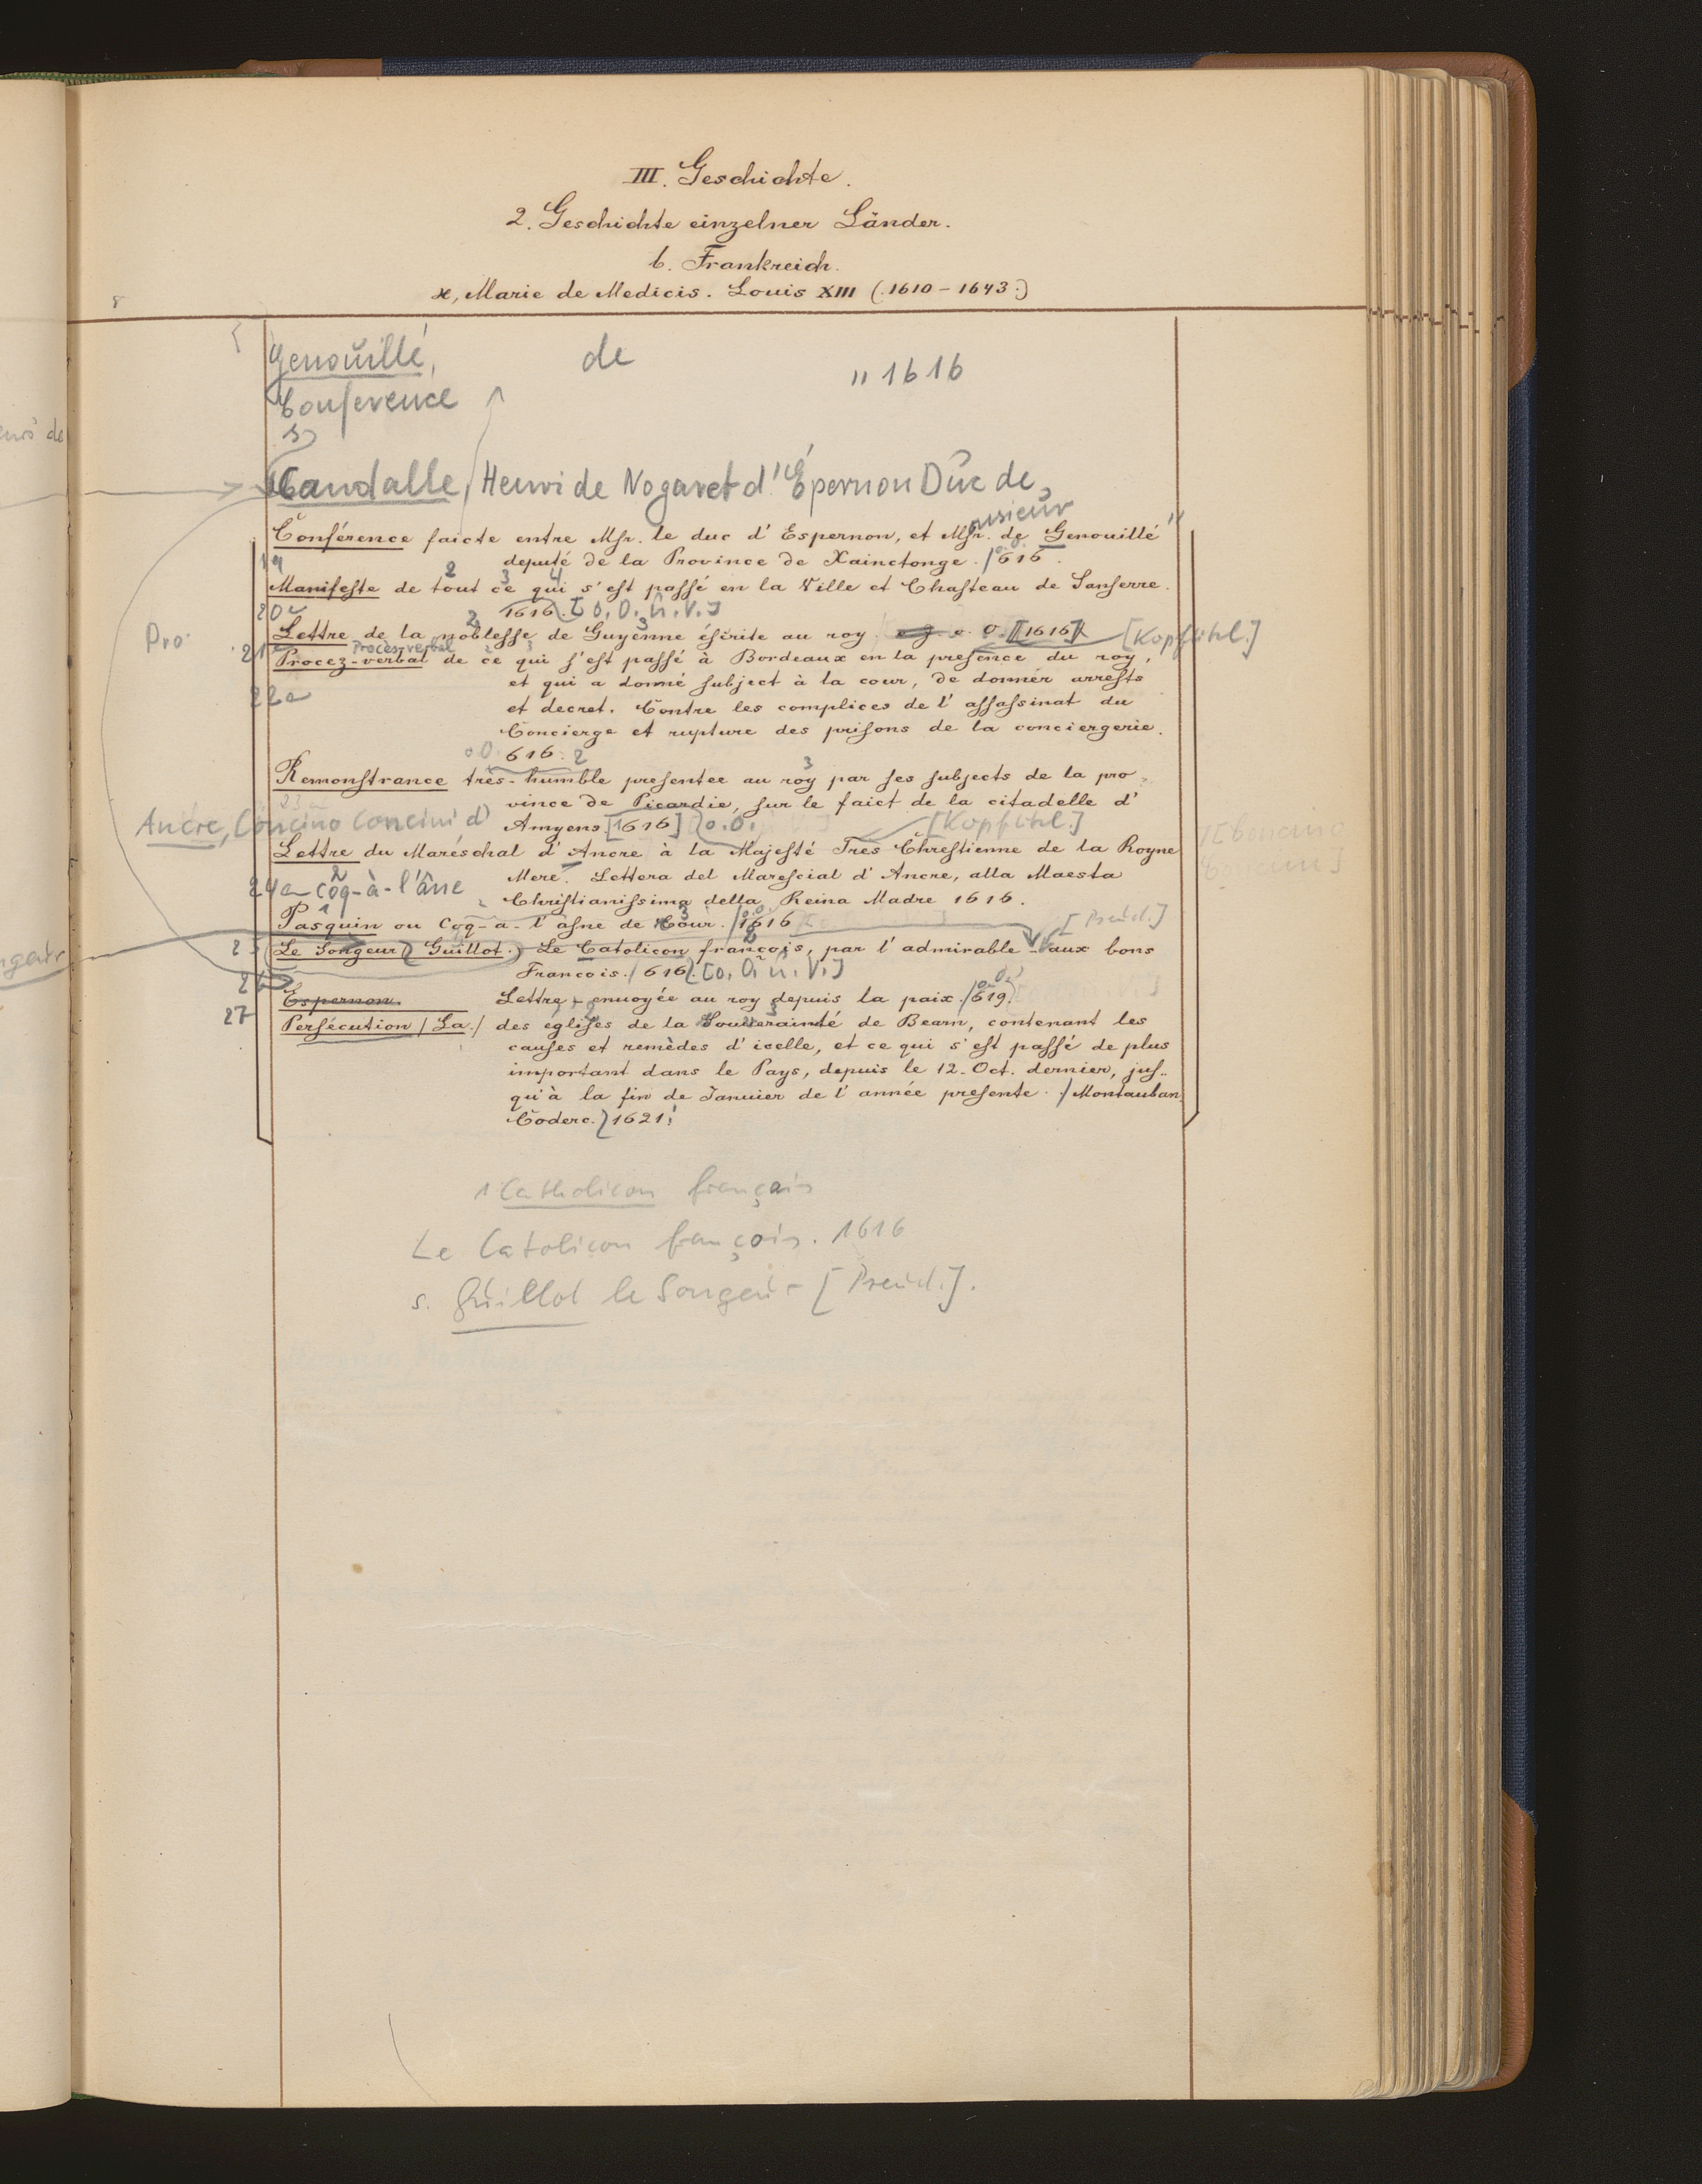 III. Geschichte.
2. Geschichte einzelner Länder.
b. Frankreich.
ϰ, Marie de Medicis. Louis XIII (.1610-1643.)
Genouillé, de " 1616
Conference
s
Candalle, Henri de Nogaret d'Épernon Duc de,
Conférence faicte entre Msr. le duc d'Espernon, et Msr. onsieur de Genouillé
19 deputé de la Province de Xainctonge. / 616.
Manifeste de tout ce qui s'est passé en la Ville et Chasteau de Sanserre.
20a 1616. [o. O. u. V.]
Lettre de la noblesse de Guyenne éscrite au roy. o. O. [1616] [Kopftitel.]
Pro
21a Procès-verbal
Procez-verbal de ce qui s'est passé à Bordeaux en la presence du roy,
et qui a donné subject à la cour, de donner arrests
22a
et decret. Contre les complices de l'assassinat du
Concierge et rupture des prisons de la conciergerie.
o O. 616.
Remonstrance très-humble presentee au roy par ses subjects de la pro-
23a vince de Picardie, sur le faict de la citadelle d'
Ancre, Concino Concini d' Amyens [1616] o. O. [Kopftitel.]
Lettre du Maréschal d'Ancre à la Majesté Tres Chrestienne de la Royne
Mere. Lettera del Marescial d'Ancre, alla Maesta
24a Coq-à-l'âne Christianissima della Reina Madre 1616.
Pasquin ou Coq-a-l'asne de Cour. / 1616 [Pseud.]
25 Le Songeur Guillot. Le Catolicon françois, par l'admirable - aux bons
Francois. / 616. [o. O. u. V.]
26 Espernon. Lettre envoyée au roy depuis la paix. / 619.
27 Persécution / La / des églises de la Souverainté de Bearn, contenant les
causes et remèdes d'icelle, et ce qui s'est passé de plus
important dans le Pays, depuis le 12. Oct. dernier, jus-
qu'à la fin de Janvier de l'année presente. / Montauban.
Coderc. 1621.
1 Catholicon français
Le Catolicon françois. 1616
s. Guillot le Songeur [Pseud.].